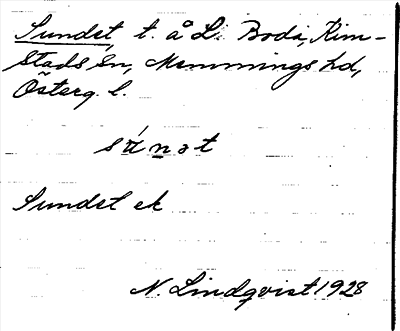 Sundet, t. å L: Boda, Kim-
stads sn, Memmings hd,
Österg. l.
súnət
Sundet ek
N. Lindqvist 1928